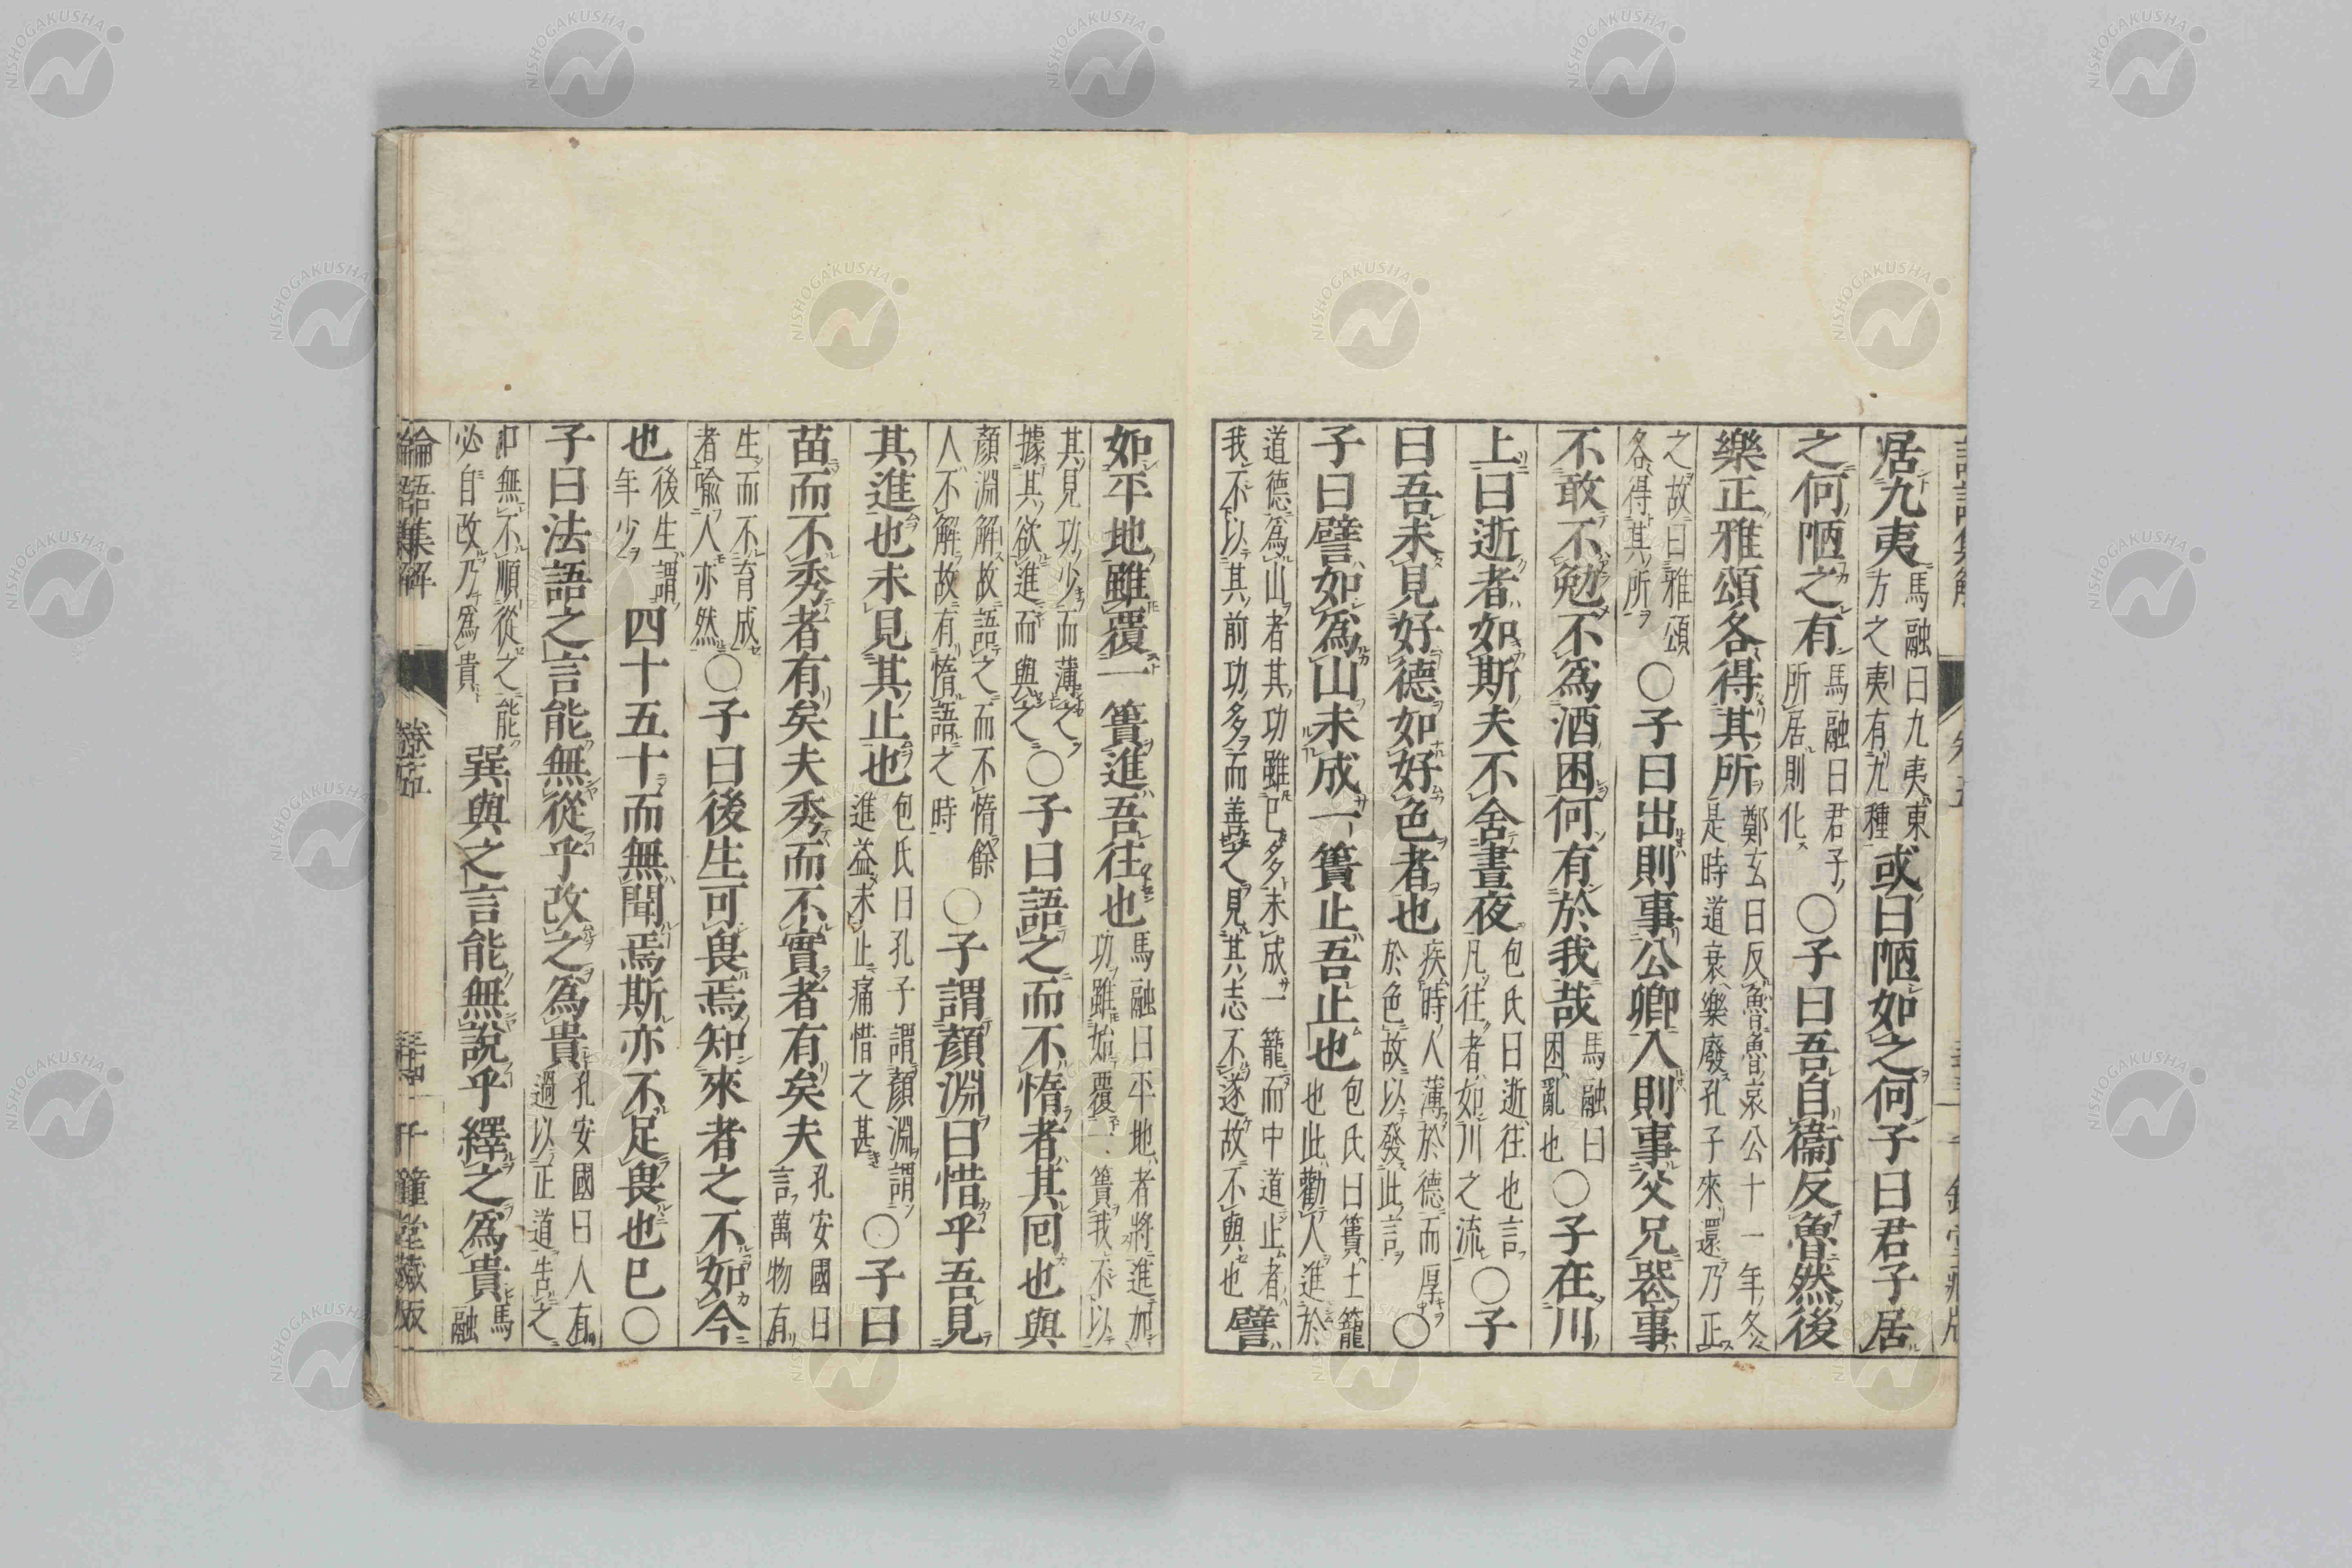 居九夷馬融曰九夷東方之夷有九種或曰陋如之何子曰君子居
之何陋之有馬融曰君子所居則化〇子曰吾自衞反魯然後
樂正雅頌各得其所鄭玄曰反魯魯哀公十一年冬是時道衰樂廢孔子來還乃正
之故曰雅頌各得其所〇子曰出則事公卿入則事父兄喪事
不敢不勉不爲酒困何有於我哉馬融曰困亂也〇子在川
上曰逝者如斯夫不舍晝夜包氏曰逝往也言凡往者如川之流〇子
曰吾未見好德如好色者也疾時人薄於德而厚於色故以發此言〇
子曰譬如爲山未成一簣止吾止也包氏曰簣土籠也此勸人進於
道德爲山者其功雖已多未成一籠而中道止者我不以其前功多而善之見其志不遂故不與也譬
如平地雖覆一簣進吾往也馬融曰平地者將進加功雖始覆一簣我不以
其見功少而薄之據其欲進而與之〇子曰語之而不惰者其回也與
顏淵解故語之而不惰餘人不解故有惰語之時〇子謂顏淵曰惜乎吾見
其進也未見其止也包氏曰孔子謂顏淵謂進益未止痛惜之甚〇子曰
苗而不秀者有矣夫秀而不實者有矣夫孔安國曰言萬物有
生而不育成者喻人亦然〇子曰後生可畏焉知來者之不如今
也後生謂年少四十五十而無聞焉斯亦不足畏也已〇
子曰法語之言能無從乎改之爲貴孔安國曰人有過以正道告之
口無不順從之能必自改乃爲貴巽與之言能無說乎繹之爲貴馬融
論語集解 卷五
NISHOGAKUSHA